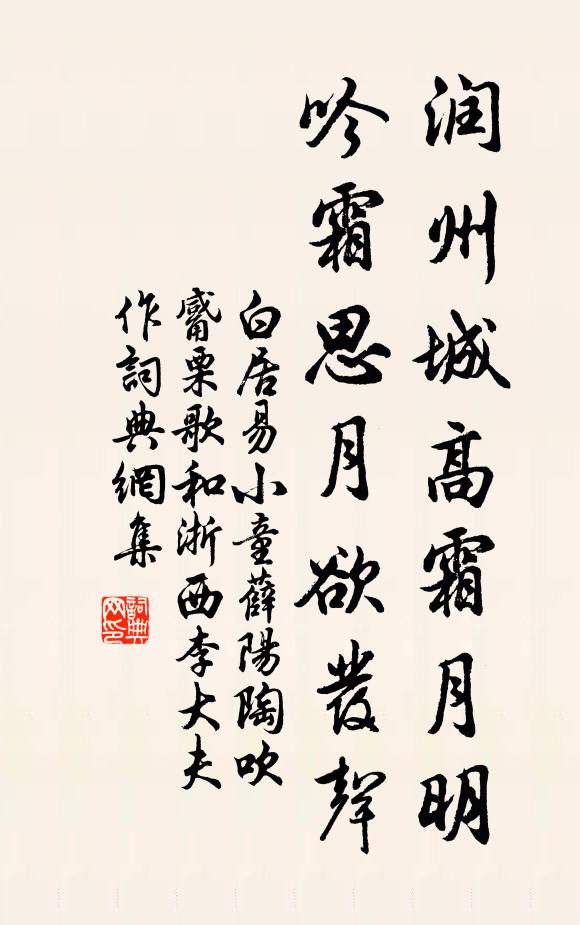 润州城高霜月明
吟霜思月欲發聲
白居易小童薛陽陶吹
觱栗歌和浙西李大夫
作詞典網集
詞典
网印